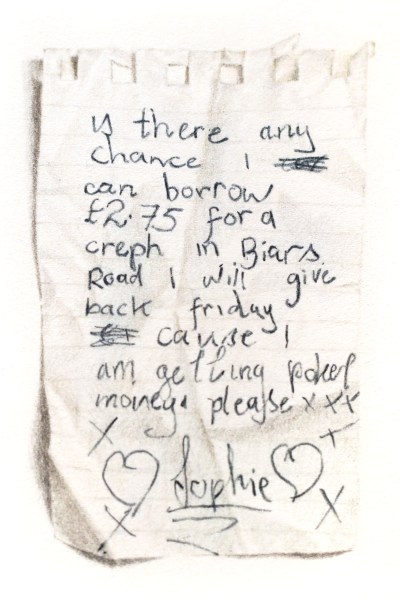 is there any
chance I
can borrow
£2.75 for a
creph in Biars
Road I will give
back friday
cause I
am getting poket
money. please x x x
x x
Sophie
x x